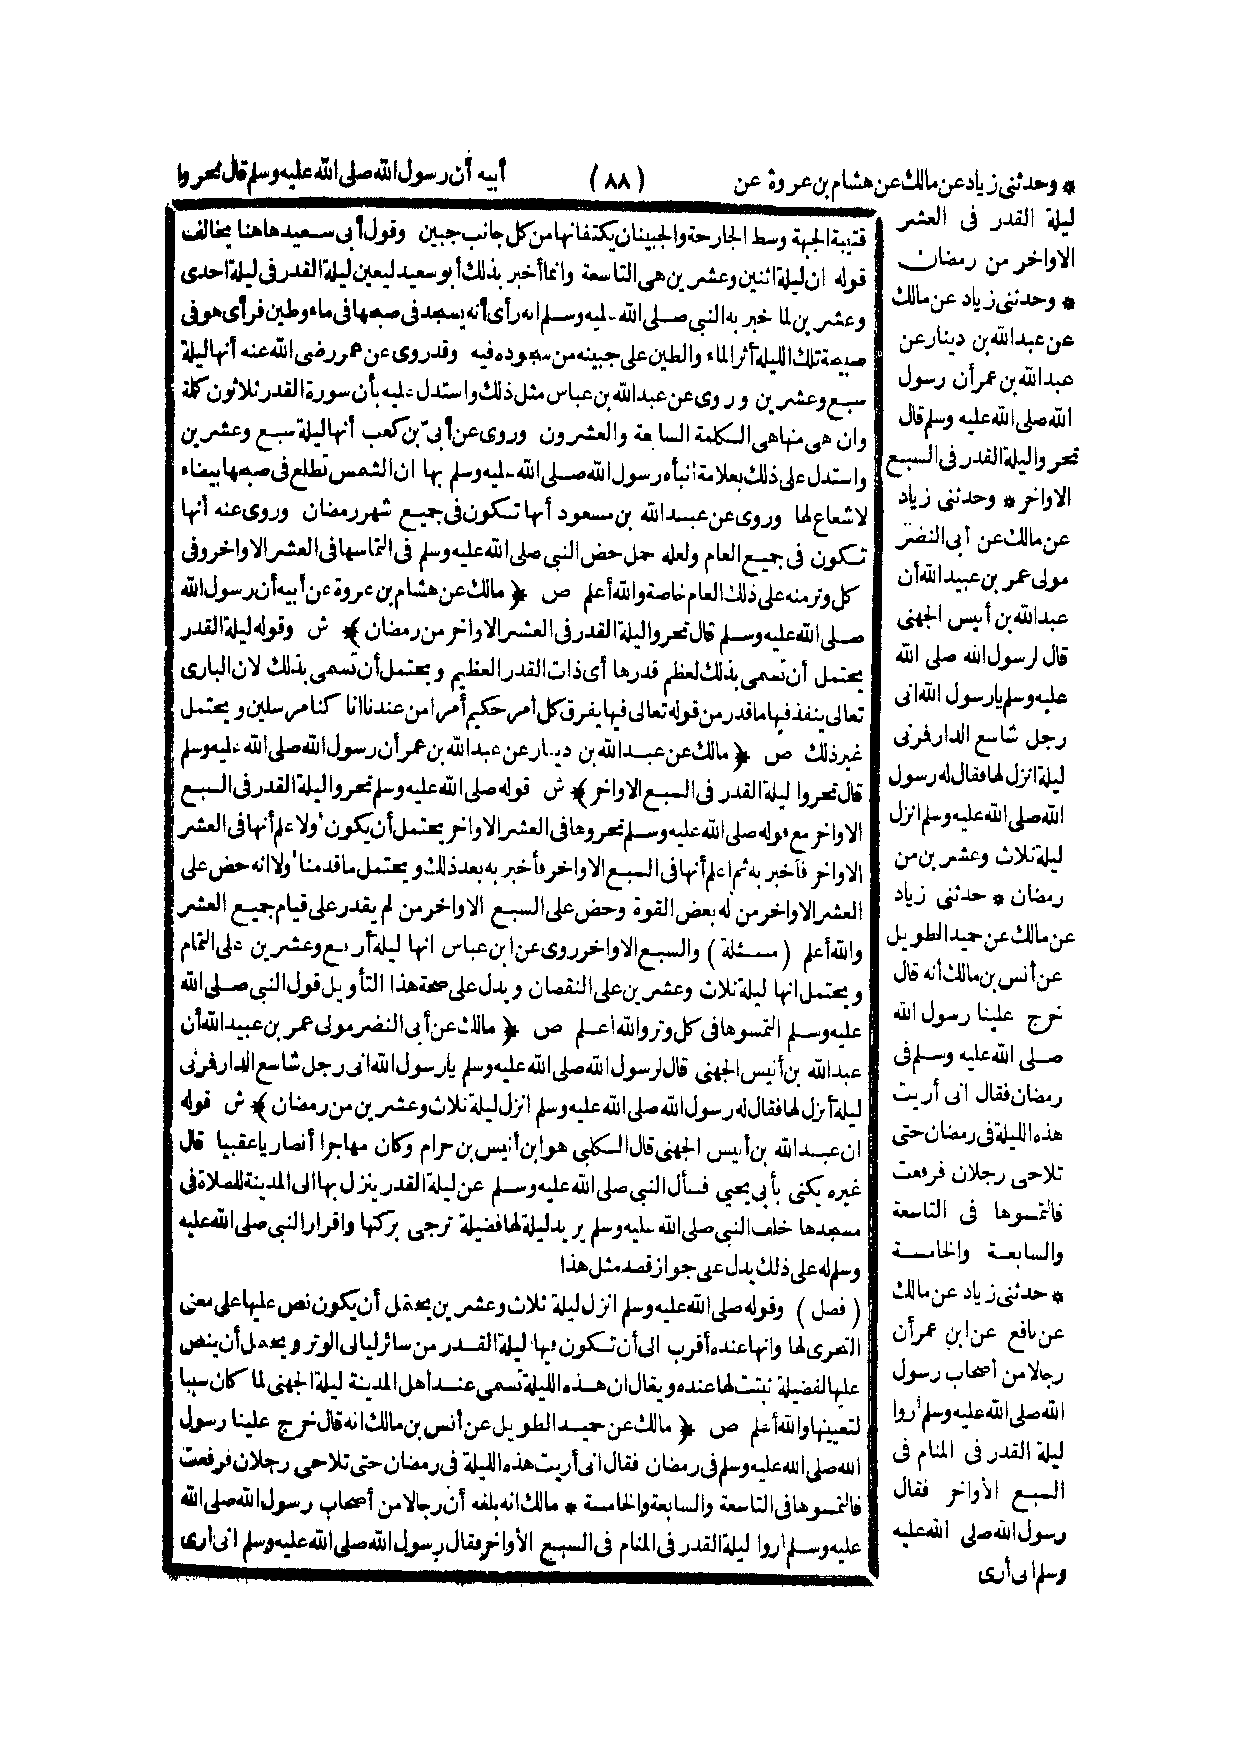 * وحدثنى زياد عن مالك عن هشام بن عروة عن
(٨٨)
أبيه أن رسول الله صلى الله عليه وسلم قال تحروا
ليلة القدر فى العشر
الاواخر من رمضان
* وحدثنى زياد عن مالك
عن عبد الله بن دينار عن
عبد الله بن عمر أن رسول
الله صلى الله عليه وسلم قال
تحروا ليلة القدر فى السبع
الاواخر * وحدثنى زياد
عن مالك عن أبى النضر
مولى عمر بن عبيد الله أن
عبد الله بن أنيس الجهنى
قال لرسول الله صلى الله
عليه وسلم يا رسول الله انى
رجل شاسع الدار فمرنى
ليلة انزل لها فقال له رسول
الله صلى الله عليه وسلم انزل
ليلة ثلاث وعشرين من
رمضان * حدثنى زياد
عن مالك عن حميد الطويل
عن أنس بن مالك أنه قال
خرج علينا رسول الله
صلى الله عليه وسلم فى
رمضان فقال انى أريت
هذه الليلة فى رمضان حتى
تلاحى رجلان فرفعت
فالتمسوها فى التاسعة
والسابعة والخامسة
* حدثنى زياد عن مالك
عن نافع عن ابن عمر أن
رجالا من أصحاب رسول
الله صلى الله عليه وسلم أروا
ليلة القدر فى المنام فى
السبع الأواخر فقال
رسول الله صلى الله عليه
وسلم انى أرى
قتيبة الجبهة وسط الجارحة والجبينان يكتنفانها من كل جانب جبين وقول أبى سعيد هاهنا يخالف
قوله ان ليلة اثنين وعشرين هى التاسعة وانما أخبر بذلك أبو سعيد ليعين ليلة القدر فى ليلة احدى
وعشرين لما خبر به النبى صلى الله عليه وسلم انه رأى أنه يسجد فى صبحها فى ماء وطين فرأى هو فى
صبيحة تلك الليلة أثر الماء والطين على جبينه من سجوده فيه وقد روى عن عمر رضى الله عنه أنها ليلة
سبع وعشرين وروى عن عبد الله بن عباس مثل ذلك واستدل عليه بأن سورة القدر ثلاثون كلمة
وان هى منها هى الكلمة السابعة والعشرون وروى عن أبىّ بن كعب أنها ليلة سبع وعشرين
واستدل على ذلك بعلامة انبأه رسول الله صلى الله عليه وسلم بها ان الشمس تطلع فى صبحها بيضاء
لا شعاع لها وروى عن عبد الله بن مسعود أنها تكون فى جميع شهر رمضان وروى عنه أنها
تكون فى جميع العام ولعله حمل حض النبى صلى الله عليه وسلم فى التماسها فى العشر الاواخر وفى
كل وتر منه على ذلك العام خاصة والله أعلم ص ﴿ مالك عن هشام بن عروة عن أبيه أن رسول الله
صلى الله عليه وسلم قال تحروا ليلة القدر فى العشر الاواخر من رمضان ﴾ ش وقوله ليلة القدر
يحتمل أن تسمى بذلك لعظم قدرها أى ذات القدر العظيم ويحتمل أن تسمى بذلك لان البارى
تعالى ينفذ فيها ما قدر من قوله تعالى فيها يفرق كل أمر حكيم أمرا من عندنا انا كنا مرسلين ويحتمل
غير ذلك ص ﴿ مالك عن عبد الله بن دينار عن عبد الله بن عمر أن رسول الله صلى الله عليه وسلم
قال تحروا ليلة القدر فى السبع الاواخر ﴾ ش قوله صلى الله عليه وسلم تحروا ليلة القدر فى السبع
الاواخر مع قوله صلى الله عليه وسلم تحروها فى العشر الاواخر يحتمل أن يكون أولا علم أنها فى العشر
الاواخر فأخبر به ثم اعلم أنها فى السبع الاواخر فأخبر به بعد ذلك ويحتمل ما قدمنا أولا انه حض على
العشر الاواخر من له بعض القوة وحض على السبع الاواخر من لم يقدر على قيام جميع العشر
والله أعلم ( مسئلة ) والسبع الاواخر روى عن ابن عباس انها ليلة أربع وعشرين على التمام
ويحتمل انها ليلة ثلاث وعشرين على النقصان ويدل على صحة هذا التأويل قول النبى صلى الله
عليه وسلم التمسوها فى كل وتر والله اعلم ص ﴿ مالك عن أبى النضر مولى عمر بن عبيد الله أن
عبد الله بن أنيس الجهنى قال لرسول الله صلى الله عليه وسلم يا رسول الله انى رجل شاسع الدار فمرنى
ليلة أنزل لها فقال له رسول الله صلى الله عليه وسلم انزل ليلة ثلاث وعشرين من رمضان ﴾ ش قوله
ان عبد الله بن أنيس الجهنى قال الكلبى هو ابن أنيس بن حرام وكان مهاجرا أنصاريا عقبيا قال
غيره يكنى بأبى يحيى فسأل النبى صلى الله عليه وسلم عن ليلة القدر ينزل بها الى المدينة للصلاة فى
مسجدها خلف النبى صلى الله عليه وسلم يريد ليلة لها فضيلة ترجى بركتها واقرار النبى صلى الله عليه
وسلم له على ذلك يدل على جواز قصد مثل هذا
( فصل ) وقوله صلى الله عليه وسلم انزل ليلة ثلاث وعشرين يحتمل أن يكون نص عليها على معنى
التحرى لها وانها عنده أقرب الى أن تكون بها ليلة القدر من سائر ليالى الوتر ويحتمل أن ينص
عليها لفضيلة ثبتت لها عنده ويقال ان هذه الليلة تسمى عند أهل المدينة ليلة الجهنى لما كان سببا
لتعيينها والله أعلم ص ﴿ مالك عن حميد الطويل عن أنس بن مالك انه قال خرج علينا رسول
الله صلى الله عليه وسلم فى رمضان فقال انى أريت هذه الليلة فى رمضان حتى تلاحى رجلان فرفعت
فالتمسوها فى التاسعة والسابعة والخامسة * مالك انه بلغه أن رجالا من أصحاب رسول الله صلى الله
عليه وسلم أروا ليلة القدر فى المنام فى السبع الأواخر فقال رسول الله صلى الله عليه وسلم انى أرى